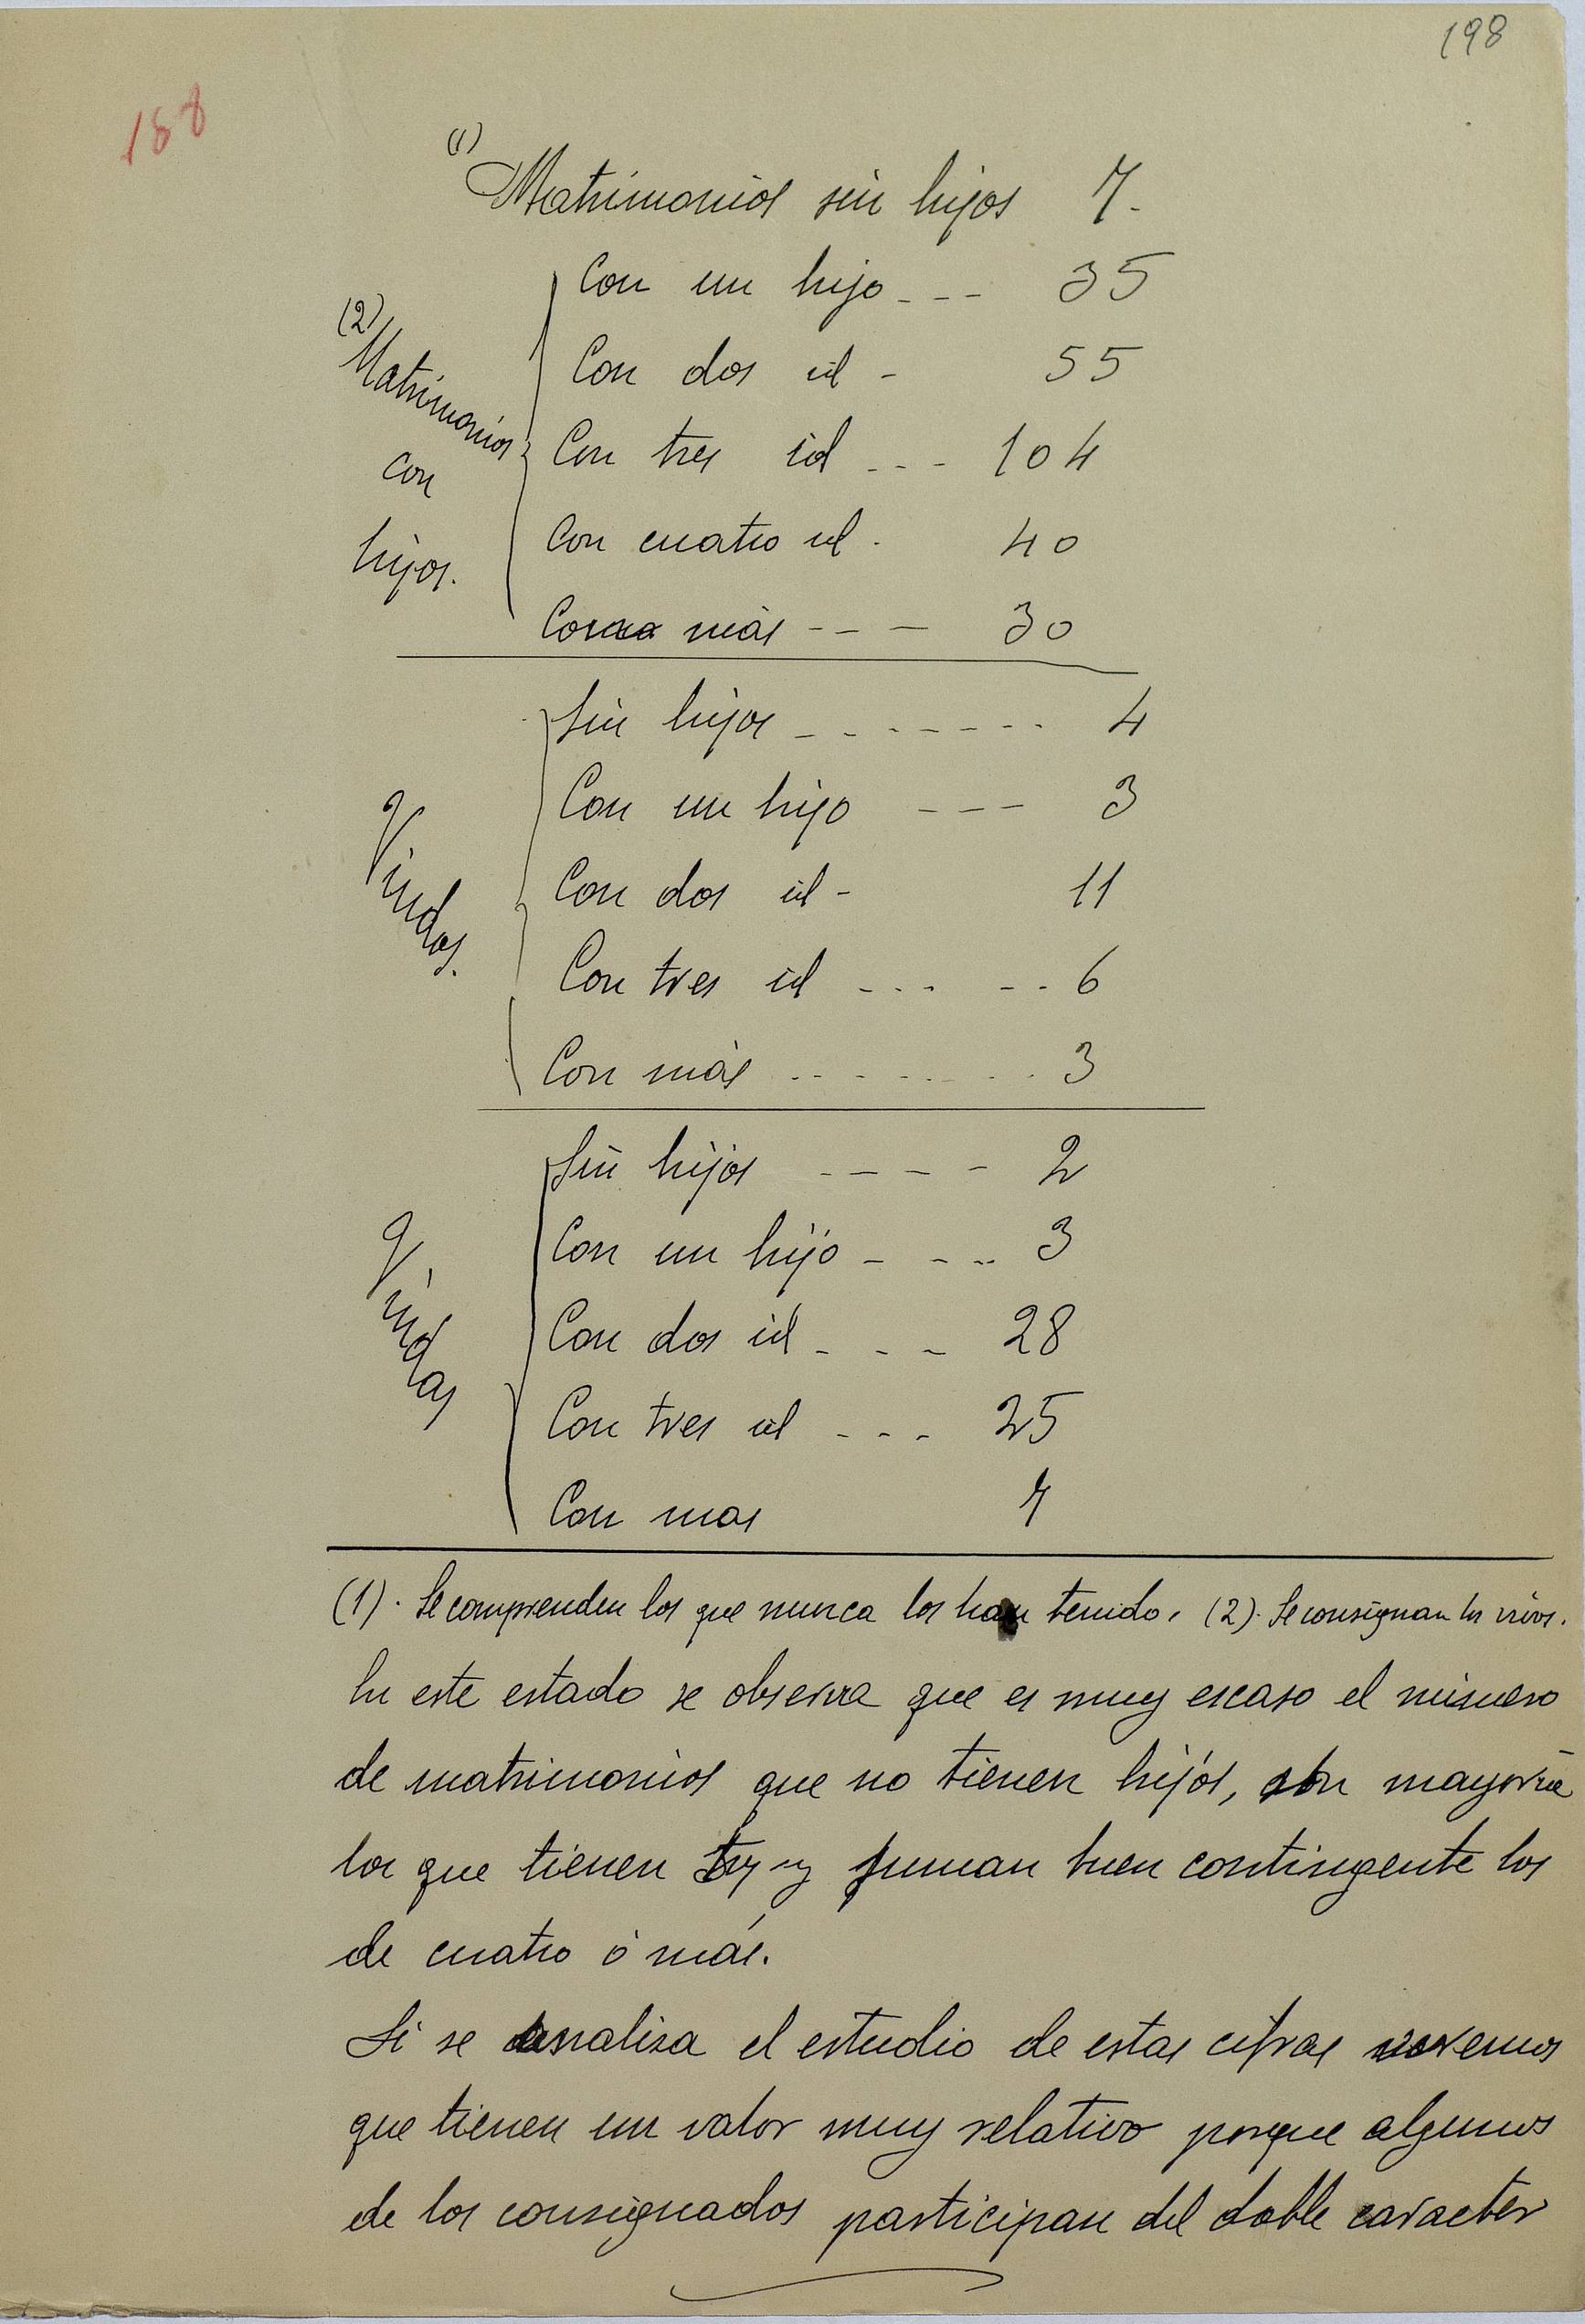 198
188
(1)
Matrimonios sin hijos 7.
Con un hijo --- 35
(2)
Matrimonios
con
hijos.
Con dos id - 55
Con tres id --- 104
Con cuatro id. 40
Con más --- 30
Viudos.
Sin hijos ------- 4
Con un hijo --- 3
Con dos id - 11
Con tres id ----- 6
Con más -------- 3
Viudas
Sin hijos ---- 2
Con un hijo ---- 3
Con dos id --- 28
Con tres id --- 25
Con mas 7
(1). Se comprenden los que nunca los han tenido. (2). Se consignan los vivos.
En este estado se observa que es muy escaso el número
de matrimonios que no tienen hijos, son mayoría
los que tienen tres y suman buen contingente los
de cuatro ó más.
Si se analiza el estudio de estas cifras veremos
que tienen un valor muy relativo porque algunos
de los consignados participan del doble caracter